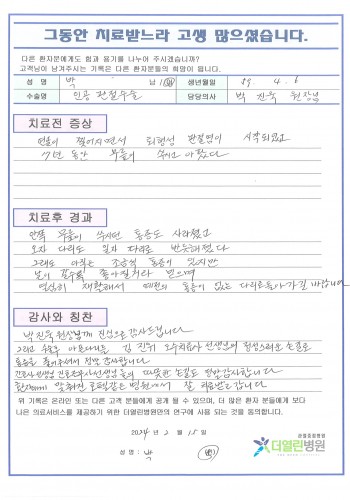 그동안 치료받느라 고생 많으셨습니다.
다른 환자분에게도 힘과 용기를 나누어 주시겠습니까?
고객님이 남겨주시는 기록은 다른 환자분들의 희망이 됩니다.
성 명 박 남/여 생년월일 59. 4. 6
수술명 인공관절수술 담당의사 박진욱 원장님
치료전 증상
연골이 찢어지면서 퇴행성 관절염이 시작되었고
7년 동안 무릎이 쑤시고 아팠다
치료후 경과
안쪽 무릎이 쑤시던 통증도 사라졌고
오자 다리도 일자 다리로 반듯해졌다
그래도 아직은 조금씩 통증이 있지만
날이 갈수록 좋아질거라 믿으며
열심히 재활해서 예전의 통증이 없는 다리로 돌아가길 바랍니다
감사와 칭찬
박진욱 원장님께 진심으로 감사드립니다
그리고 수술후 김진위 도수치료사 선생님의 정성스러운 손길로
통증을 줄여주셔서 정말 감사합니다
간호사 선생님 선생님들의 따뜻한 손길도 정말 감사합니다
환자에게 맞춰진 로 병원에서 잘 치료받고 갑니다
위 기록은 온라인 또는 다른 고객 분들에게 공개 될 수 있으며, 더 많은 환자 분들에게 보다
나은 의료서비스를 제공하기 위한 더열린병원만의 연구에 사용 되는 것을 동의합니다.
2024 년 2 월 15 일
성 명 : 박 (인)
관절척추병원
더열린병원